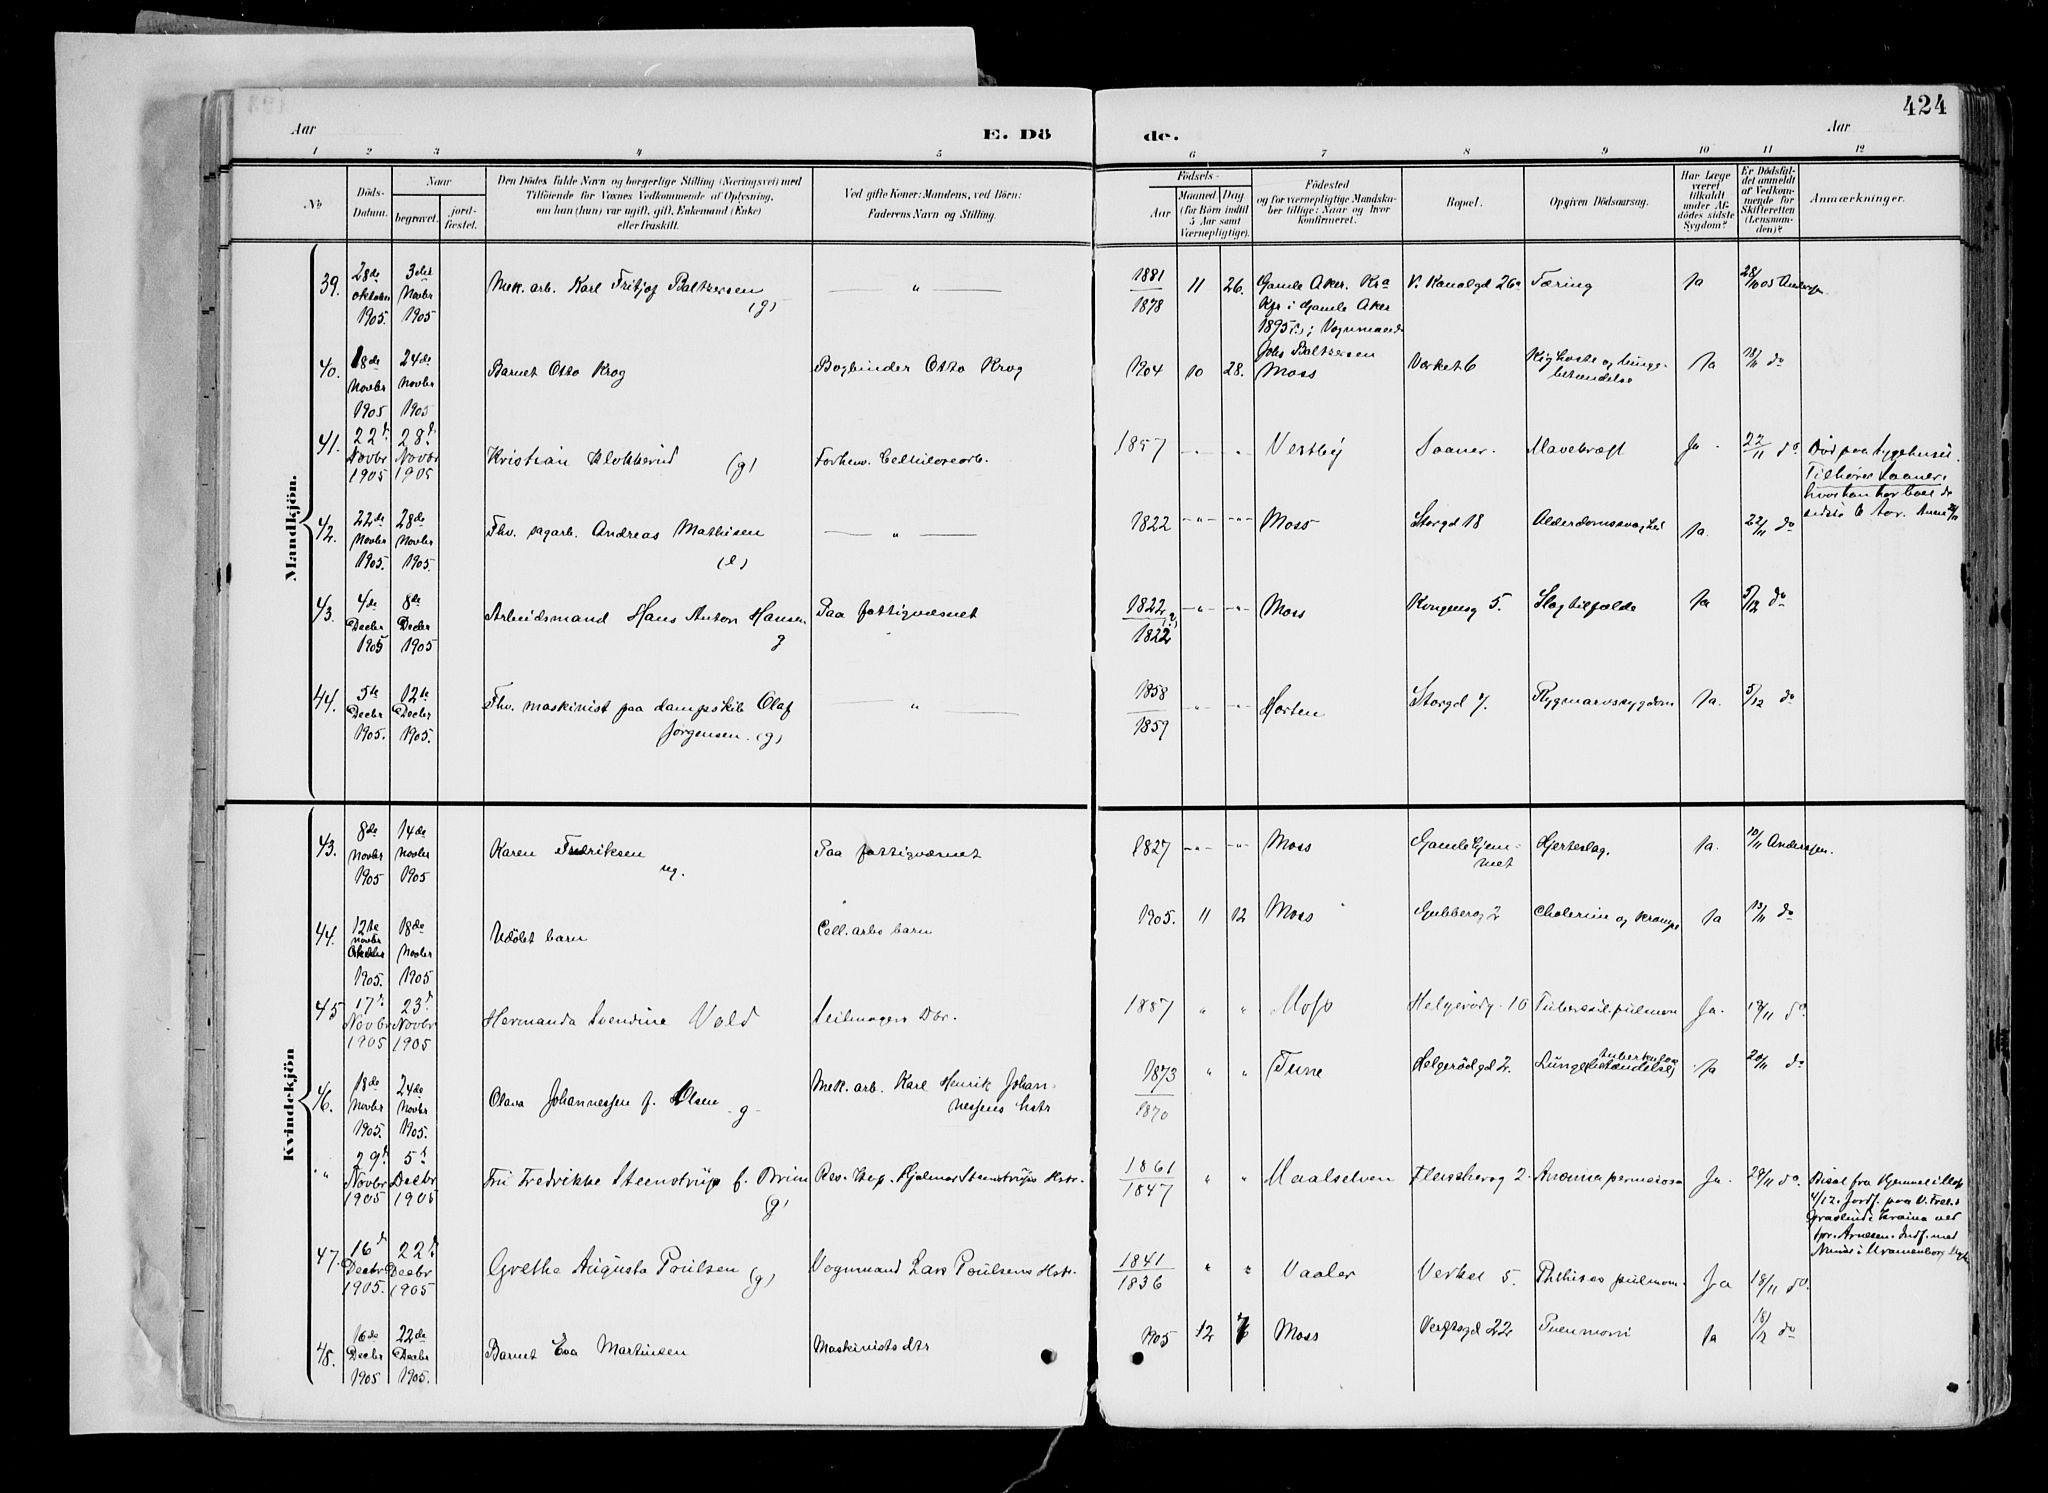 424
Aar
E. Dö
de.
Aar
1 2 3 4 5 6 7 8 9 10 11 12
No
Döds-
Datum.
Naar
begravet.
jord-
fæstet.
Den Dödes fulde Navn og borgerlige Stilling (Næringsvei) med
Tilföiende for Voxnes Vedkommende af Oplysning,
om han (hun) var ugift, gift, Enkemand (Enke)
eller fraskilt.
Ved gifte Koner: Mandens, ved Börn:
Faderens Navn og Stilling.
Födsels-
Aar
Maaned
Dag
(for Börn indtil
5 Aar samt
Værnepligtige).
Födested
og for værnepligtige Mandsku-
ber tillige: Naar og hvor
konfirmeret.
Bopæl.
Opgiven Dödsaarsag.
Har Læge
været
tilkaldt
under Af-
dödes sidste
Sygdom?
Er Dödsfal-
det anmeldt
af Vedkom-
mende for
Skifteretten
(Lensman-
den)?
Anmærkninger.
Mandkjön.
39. 28de oktober 1905. 3die Novbr 1905
Mek. arb. Karl Fritjof Baltzersen (g)
"
1881 / 1878 11 26.
Gamle Aker. Kra
Kfr i Gamle Aker
1895; Vognmand
Johs Baltzersen
V. Kanalgd 26a
Tæring
Ja
28/10 05 Andersen
40. 18de Novbr 1905 24de Novbr 1905
Barnet Otto Krog
Bogbinder Otto Krog
1904 10 28.
Moss
Værket 6
Kighoste og lunge-
betændelse
Ja
18/11 do
41. 22d. Novbr 1905 28d. Novbr 1905
Kristian Klokkerud (g)
Forhenv. Cellulosearb.
1857
Vestby
Saaner.
Mavekræft
Ja.
22/11 do.
Död paa Sygehuset.
Tilhörer Saaner,
hvor han har boet de
sidste 6 Aar.
42. 22de Novbr 1905. 28de Novbr 1905.
Fhv. sagarb. Andreas Mathisen (e)
"
1822
Moss
Storgd 18
Alderdomssvaghed
Ja.
22/11 do
43. 4de Decbr 1905 8de Decbr 1905
Arbeidsmand Hans Anton Hansen g
Paa fattigvæsnet
1822 / 1822 (?)
Moss
Kongensg 5.
Slagtilfælde
Ja
5/12 do
44. 5te Decbr 1905. 12te Decbr 1905.
Fhv. maskinist paa dampskib Olaf
Jørgensen. (g)
"
1858 / 1859
Horten
Storgd 7.
Rygmarvssygdom
Ja.
5/12 do
Kvindekjön
43. 8de Novbr 1905 14de Novbr 1905
Karen Fredriksen ug.
Paa fattigvæsnet
1827
Moss
Gamlehjem-
met
Hjerteslag.
Ja.
10/11 Andersen.
44. 12te novbr 1905. 18de Novbr 1905
Udöbt barn
Cell. arbs barn
1905. 11 12
Moss
Gubberog 2
Cholerine og krampe
Ja
13/11 do
45 17d. Novbr 1905 23d Novbr 1905
Hermanda Svendine Vold
Seilmagers Dtr.
1887 " "
Moss
Helgerödg. 10
Tubercul. pulmon
Ja.
18/11 do.
46. 18de Novbr 1905. 24de Novbr 1905.
Olava Johannessen f. Olsen g
Mek. arb. Karl Henrik Johan-
nessens hstr
1873 / 1870 " "
Tune
Helgerödgd 2.
Lungetuberkulose
(betændelse)
Ja
20/11 do
" 29d Novbr 1905 5d Decbr 1905
Fru Fredrikke Steenstrup f. Brun (g)
Res. Kap. Hjalmar Steenstrups Hstr.
1861 / 1847 " "
Maalselven
Flensborg 2.
Anæmia perniciosa
Ja.
29/11 do.
Bisat fra Hjemmet i Moss
4/12. Jordf. paa V. Frel.s
Gravlund i Kr.ania ved
Spr. Arnesen.
47. 16d Decbr 1905. 22d Decbr 1905
Grethe Augusta Poulsen (g)
Vognmand Lars Poulsens Hstr.
1841 / 1836 " "
Vaaler
Verket 5.
Phthises pulmon.
Ja
18/11 do.
48. 16de Decbr 1905 22de Decbr 1905.
Barnet Eva Martinsen
Maskinists dtr
1905 12
Moss
Verftsgd 22
Pneumoni
Ja
18/12 do